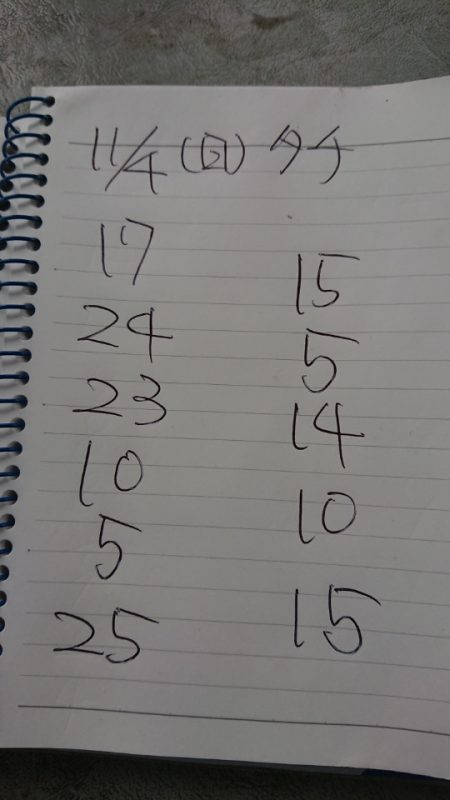 11/4(日) タチ
17
24
23
10
5
25
15
5
14
10
15